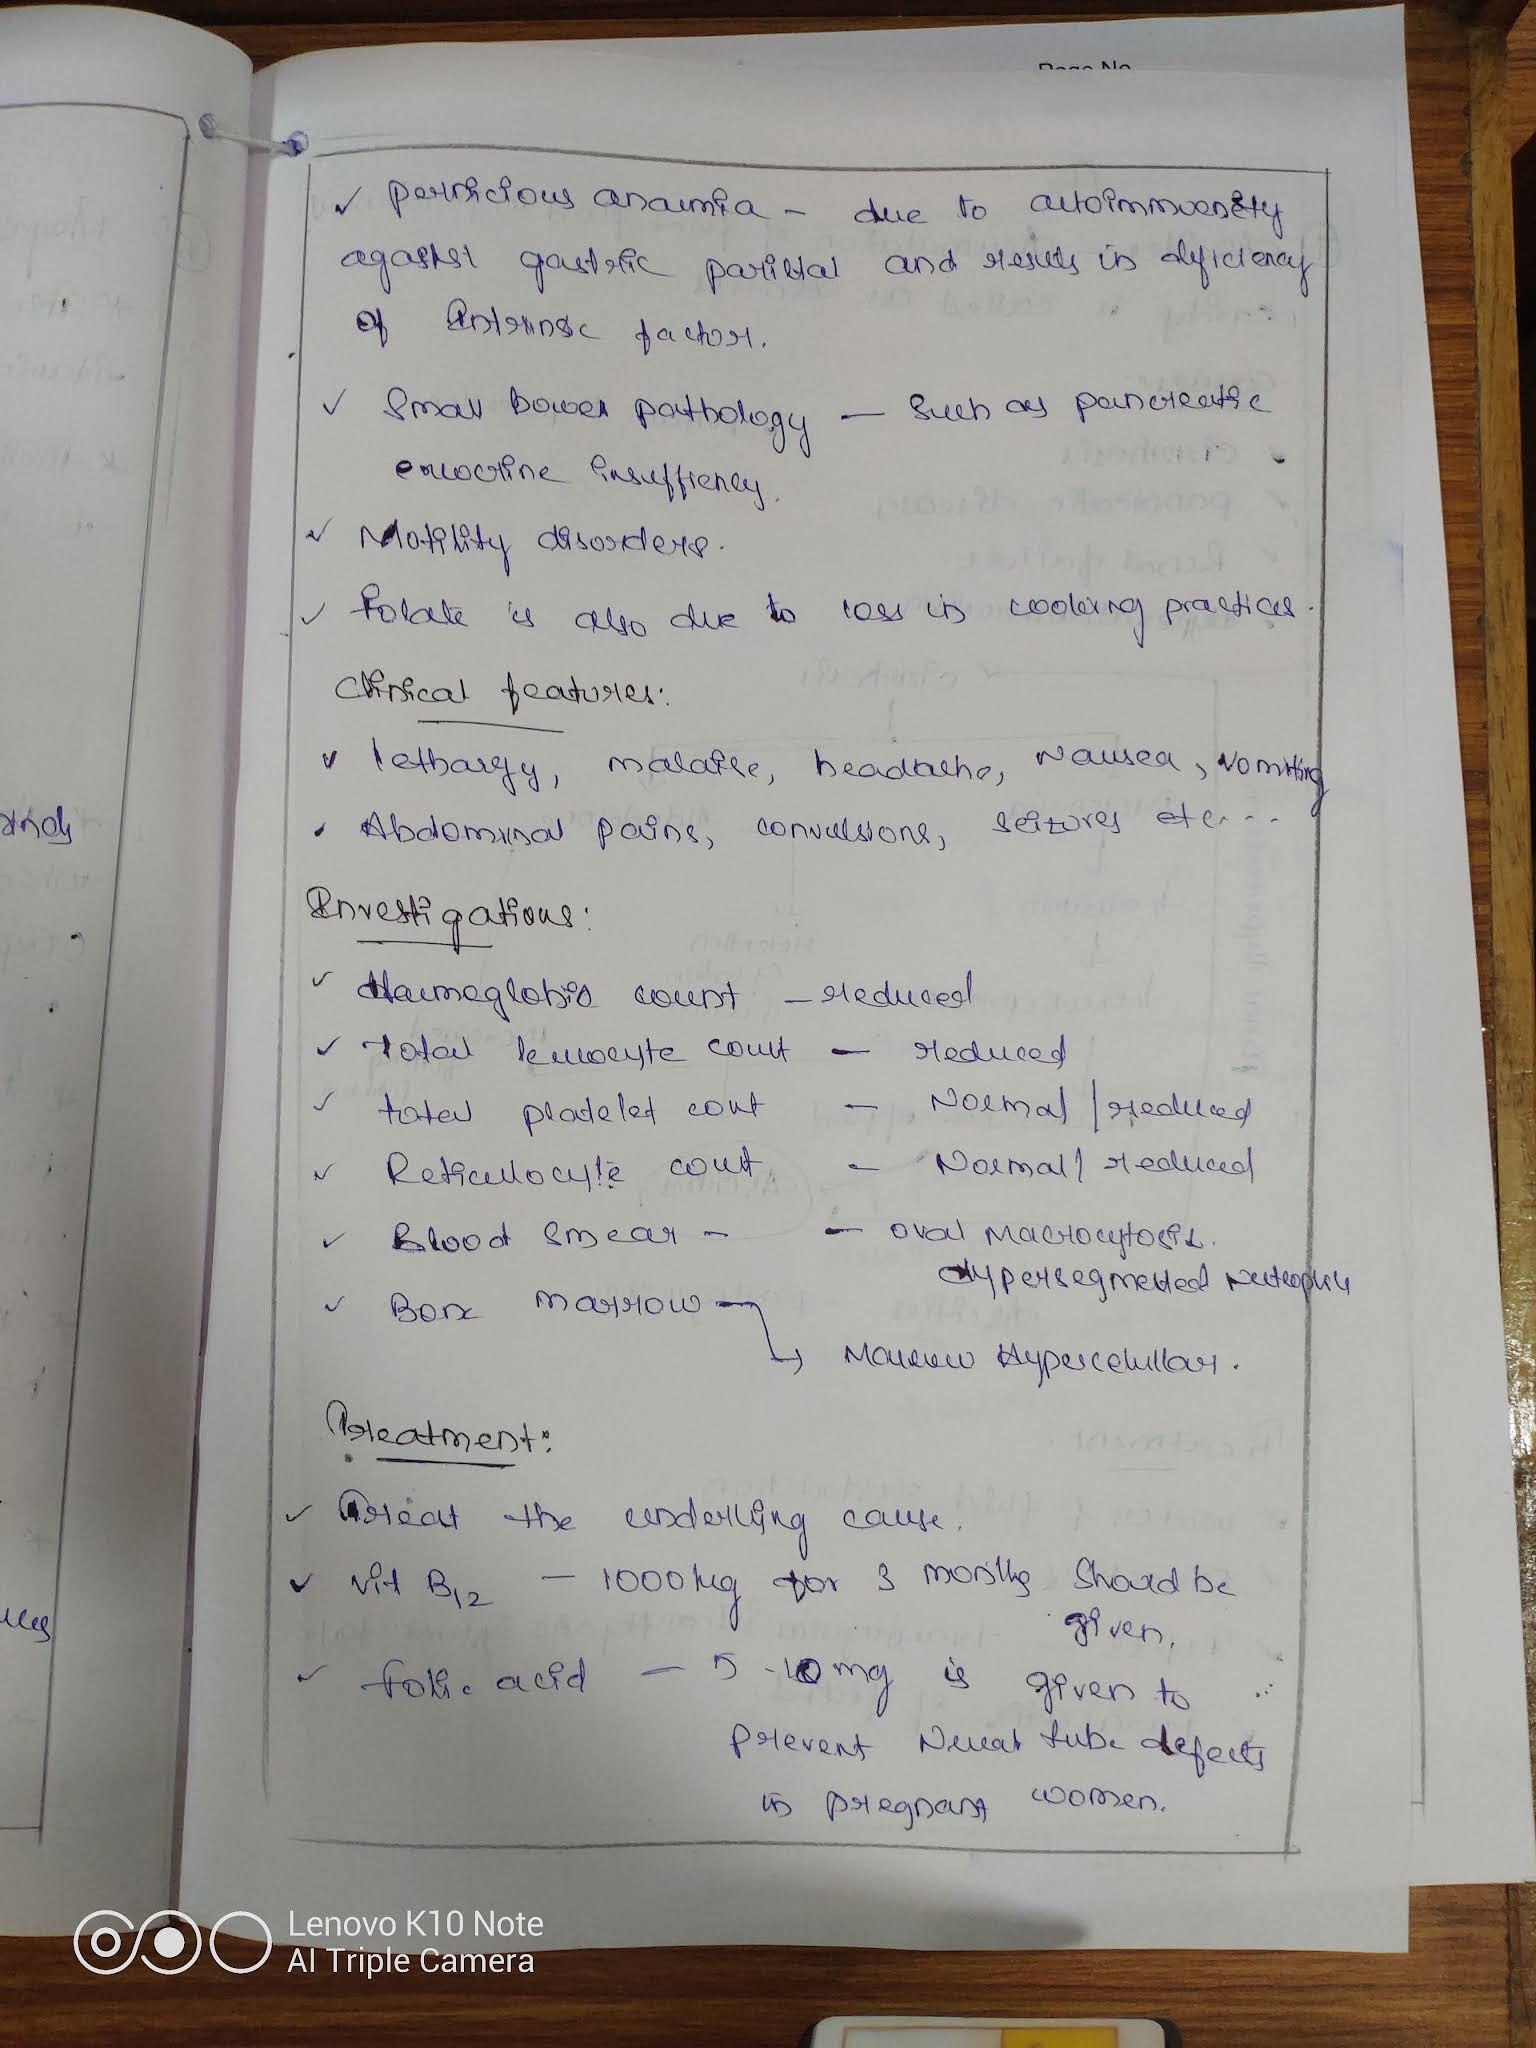 ✓ pernicious anaemia - due to autoimmunity
against gastric parietal and results in deficiency
of Intrinsic factor.
✓ Small bowel pathology — Such as pancreatic
exocrine insufficiency.
✓ Motility disorders.
✓ Folate is also due to loss in cooking practices.
Clinical features:
✓ lethargy, malaise, headache, Nausea, Vomitting
• Abdominal pains, convulsions, seizures etc....
Investigations:
✓ Haemoglobin count - reduced
✓ Total leucocyte count — reduced
✓ total platelet cout — Normal / reduced
✓ Reticulocyte cout - Normal / reduced
✓ Blood smear - — oval Macrocytosis.
Hypersegmented Neutrophils
✓ Bone marrow
↳ Marrow Hypercelullar.
Treatment:
✓ Treat the underlying cause.
✓ Vit B12 — 1000 µg for 3 months should be
given.
✓ folic acid — 5-10 mg is given to
prevent Neural tube defects
in pregnant women.
Lenovo K10 Note
AI Triple Camera